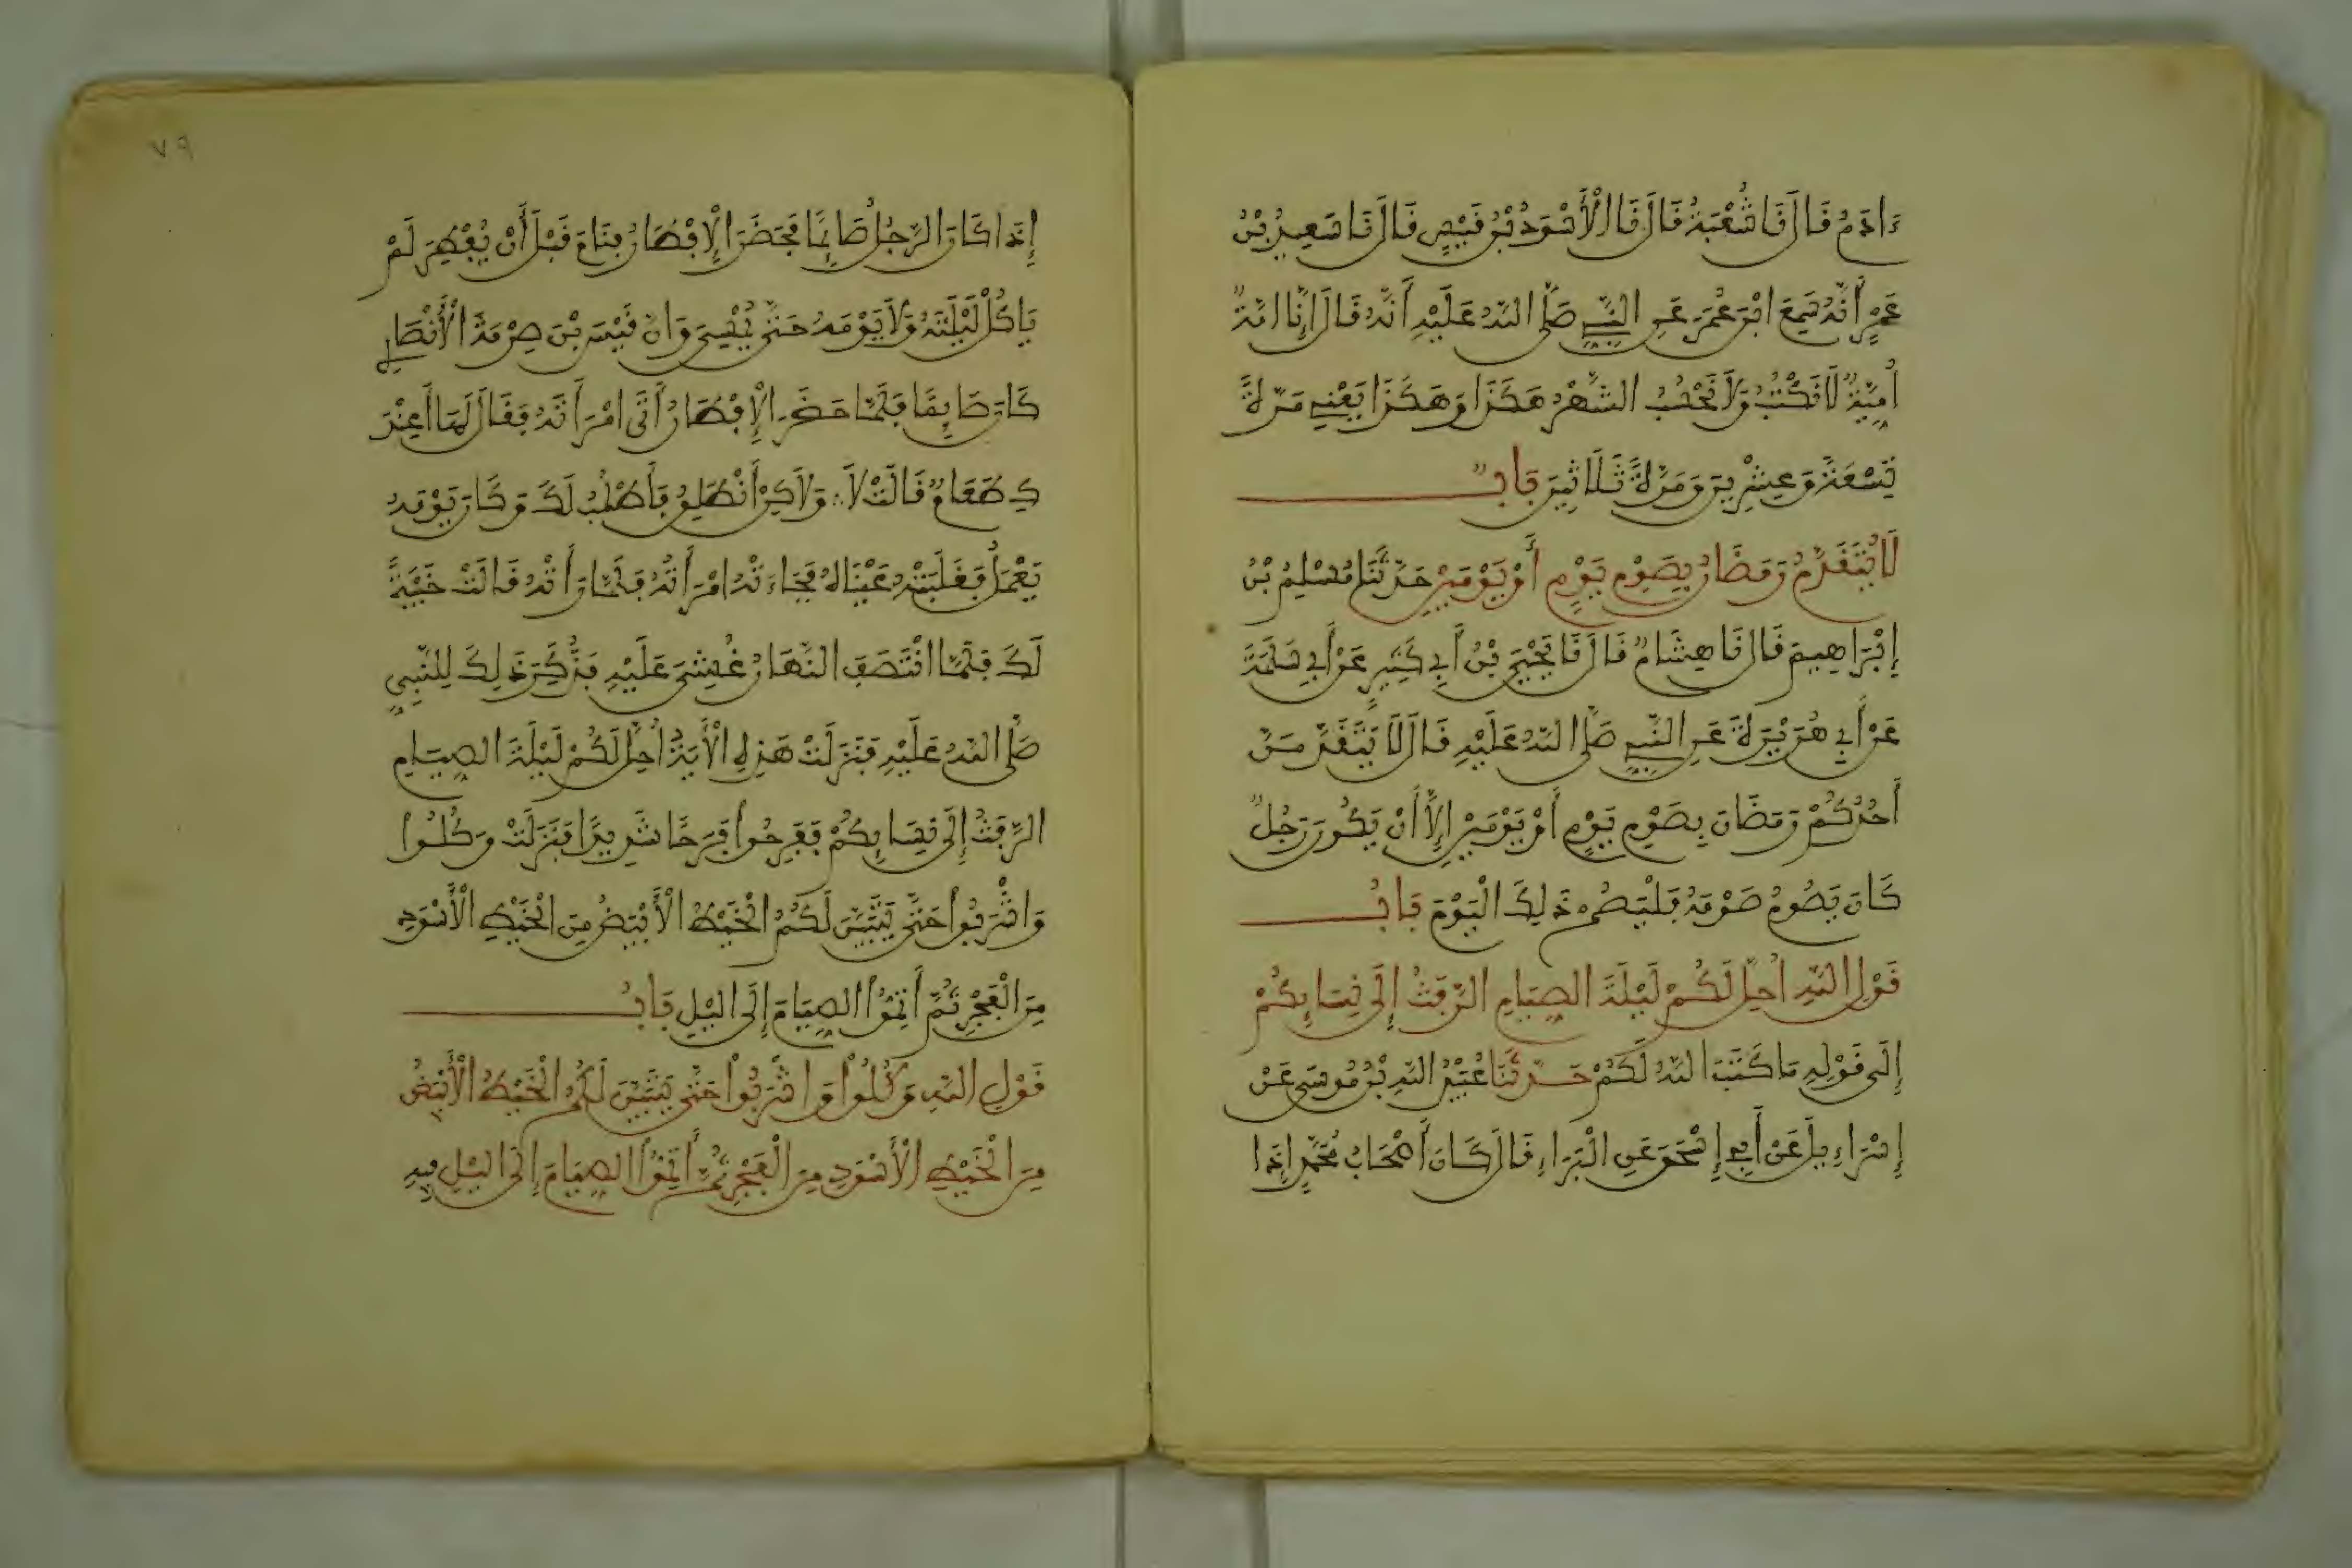 ءَادَمُ قَالَ نَا شُعْبَةُ قَالَ نَا الْأَسْوَدُ بْنُ قَيْسٍ قَالَ نَا سَعِيدُ بْنُ
عَمْرٍ أَنَّهُ سَمِعَ ابْنَ عُمَرَ عَنِ النَّبِيِّ صَلَّى اللهُ عَلَيْهِ أَنَّهُ قَالَ إِنَّا أُمَّةٌ
أُمِّيَّةٌ لَا نَكْتُبُ وَلَا نَحْسُبُ الشَّهْرُ هَكَذَا وَهَكَذَا يَعْنِي مَرَّةً
تِسْعَةً وَعِشْرِينَ وَمَرَّةً ثَلَاثِينَ بَابٌ
لَا يُتَقَدَّمُ رَمَضَانُ بِصَوْمِ يَوْمٍ أَوْ يَوْمَيْنِ حَدَّثَنَا مُسْلِمُ بْنُ
إِبْرَاهِيمَ قَالَ نَا هِشَامٌ قَالَ نَا يَحْيَى بْنُ أَبِي كَثِيرٍ عَنْ أَبِي سَلَمَةَ
عَنْ أَبِي هُرَيْرَةَ عَنِ النَّبِيِّ صَلَّى اللهُ عَلَيْهِ قَالَ لَا يَتَقَدَّمَنَّ
أَحَدُكُمْ رَمَضَانَ بِصَوْمِ يَوْمٍ أَوْ يَوْمَيْنِ إِلَّا أَنْ يَكُونَ رَجُلٌ
كَانَ يَصُومُ صَوْمَهُ فَلْيَصُمْ ذَلِكَ الْيَوْمَ بَابُ
قَوْلِ اللهِ أُحِلَّ لَكُمْ لَيْلَةَ الصِّيَامِ الرَّفَثُ إِلَى نِسَائِكُمْ
إِلَى قَوْلِهِ مَا كَتَبَ اللهُ لَكُمْ حَدَّثَنَا عُبَيْدُ اللهِ بْنُ مُوسَى عَنْ
إِسْرَاءِيلَ عَنْ أَبِي إِسْحَقَ عَنِ الْبَرَاءِ قَالَ كَانَ أَصْحَابُ مُحَمَّدٍ إِذَا
٧٩
إِذَا كَانَ الرَّجُلُ صَائِمًا فَحَضَرَ الْإِفْطَارُ فَنَامَ قَبْلَ أَنْ يُفْطِرَ لَمْ
يَاكُلْ لَيْلَتَهُ وَلَا يَوْمَهُ حَتَّى يُمْسِيَ وَإنَّ قَيْسَ بْنَ صِرْمَةَ الْأَنْصَارِي
كَانَ صَائِمًا فَلَمَّا حَضَرَ الْإِفْطَارُ أَتَى امْرَأَتَهُ فَقَالَ لَهَا أَعِنْدَ
كِ طَعَامٌ قَالَتْ لَا وَلَاكِنْ أَنْطَلِقُ فَأَطْلُبُ لَكَ وَكَانَ يَوْمَهُ
يَعْمَلُ فَغَلَبَتْهُ عَيْنَاهُ فَجَاءَتْهُ امْرَأَتُهُ فَلَمَّا رَأَتْهُ قَالَتْ خَيْبَةً
لَكَ فَلَمَّا انْتَصَفَ النَّهَارُ غُشِيَ عَلَيْهِ فَذُكِرَ ذَلِكَ لِلنَّبِيِّ
صَلَّى اللهُ عَلَيْهِ فَنَزَلَتْ هَذِهِ الْأَيَةُ أُحِلَّ لَكُمْ لَيْلَةَ الصِّيَامِ
الرَّفَثُ إِلَى نِسَائِكُمْ فَفَرِحُوا فَرَحًا شَدِيدًا فَنَزَلَتْ وَكُلُوا
وَاشْرَبُوا حَتَّى يَتَبَيَّنَ لَكُمُ الْخَيْطُ الْأَبْيَضُ مِنَ الْخَيْطِ الْأَسْوَدِ
مِنَ الْفَجْرِ ثُمَّ أَتِمُّوا الصِّيَامَ إِلَى الَّيْلِ بَابُ
قَوْلِ اللهِ وَكُلُوا وَاشْرَبُوا حَتَّى يَتَبَيَّنَ لَكُمُ الْخَيْطُ الْأَبْيَضُ
مِنَ الْخَيْطِ الْأَسْوَدِ مِنَ الْفَجْرِ ثُمَّ أَتِمُّوا الصِّيَامَ إِلَى الَّيْلِ فِيهِ